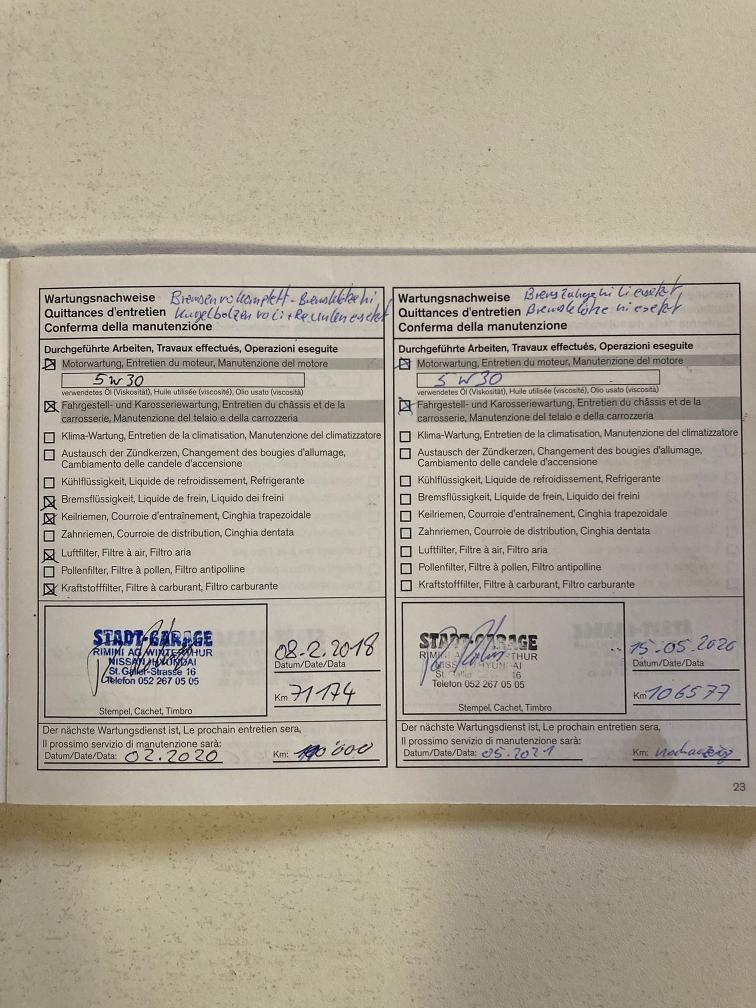 Wartungsnachweise Bremsen vo komplett - Bremsklötze hi
Quittances d'entretien Kugelbolzen vo li + Re unten ersetzt
Conferma della manutenzione
Durchgeführte Arbeiten, Travaux effectués, Operazioni eseguite
Motorwartung, Entretien du moteur, Manutenzione del motore
5W30
verwendetes Öl (Viskosität), Huile utilisée (viscosité), Olio usato (viscosità)
Fahrgestell- und Karosseriewartung, Entretien du châssis et de la
carrosserie, Manutenzione del telaio e della carrozzeria
Klima-Wartung, Entretien de la climatisation, Manutenzione del climatizzatore
Austausch der Zündkerzen, Changement des bougies d'allumage,
Cambiamento delle candele d'accensione
Kühlflüssigkeit, Liquide de refroidissement, Refrigerante
Bremsflüssigkeit, Liquide de frein, Liquido dei freini
Keilriemen, Courroie d'entraînement, Cinghia trapezoidale
Zahnriemen, Courroie de distribution, Cinghia dentata
Luftfilter, Filtre à air, Filtro aria
Pollenfilter, Filtre à pollen, Filtro antipolline
Kraftstofffilter, Filtre à carburant, Filtro carburante
STADT-GARAGE
RIMINI AG WINTERTHUR
NISSAN/HYUNDAI
St. Galler-Strasse 16
Telefon 052 267 05 05
Stempel, Cachet, Timbro
08.2.2018
Datum/Date/Data
Km 71174
Der nächste Wartungsdienst ist, Le prochain entretien sera,
Il prossimo servizio di manutenzione sarà:
Datum/Date/Data: 02.2020 Km:
Wartungsnachweise Bremszange hi Li ersetzt
Quittances d'entretien Bremsklötze hi ersetzt
Conferma della manutenzione
Durchgeführte Arbeiten, Travaux effectués, Operazioni eseguite
Motorwartung, Entretien du moteur, Manutenzione del motore
5W30
verwendetes Öl (Viskosität), Huile utilisée (viscosité), Olio usato (viscosità)
Fahrgestell- und Karosseriewartung, Entretien du châssis et de la
carrosserie, Manutenzione del telaio e della carrozzeria
Klima-Wartung, Entretien de la climatisation, Manutenzione del climatizzatore
Austausch der Zündkerzen, Changement des bougies d'allumage,
Cambiamento delle candele d'accensione
Kühlflüssigkeit, Liquide de refroidissement, Refrigerante
Bremsflüssigkeit, Liquide de frein, Liquido dei freini
Keilriemen, Courroie d'entraînement, Cinghia trapezoidale
Zahnriemen, Courroie de distribution, Cinghia dentata
Luftfilter, Filtre à air, Filtro aria
Pollenfilter, Filtre à pollen, Filtro antipolline
Kraftstofffilter, Filtre à carburant, Filtro carburante
STADT-GARAGE
Telefon 052 267 05 05
Stempel, Cachet, Timbro
15.05.2020
Datum/Date/Data
Km 106577
Der nächste Wartungsdienst ist, Le prochain entretien sera,
Il prossimo servizio di manutenzione sarà:
Datum/Date/Data: 05.2021 Km:
23